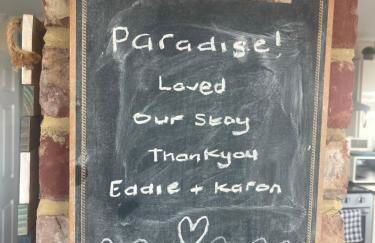 Paradise!
Loved
Our Stay
Thankyou
Eddie + Karan